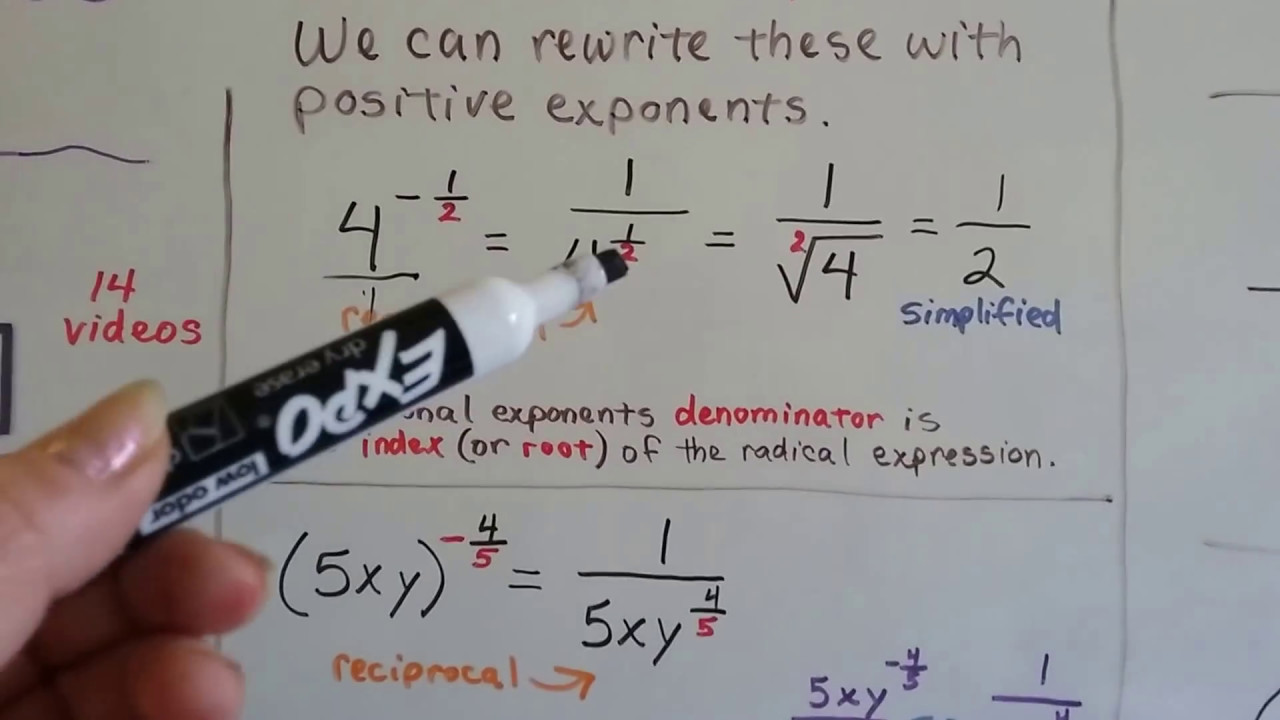 We can rewrite these with
positive exponents.
4^{-\frac{1}{2}} = \frac{1}{4^{\frac{1}{2}}} = \frac{1}{\sqrt[2]{4}} = \frac{1}{2}
simplified
14
videos
exponents denominator is
index (or root) of the radical expression.
EXPO
dry erase
low odor
(5xy)^{-\frac{4}{5}} = \frac{1}{5xy^{\frac{4}{5}}}
reciprocal
5xy^{-\frac{4}{5}} 1